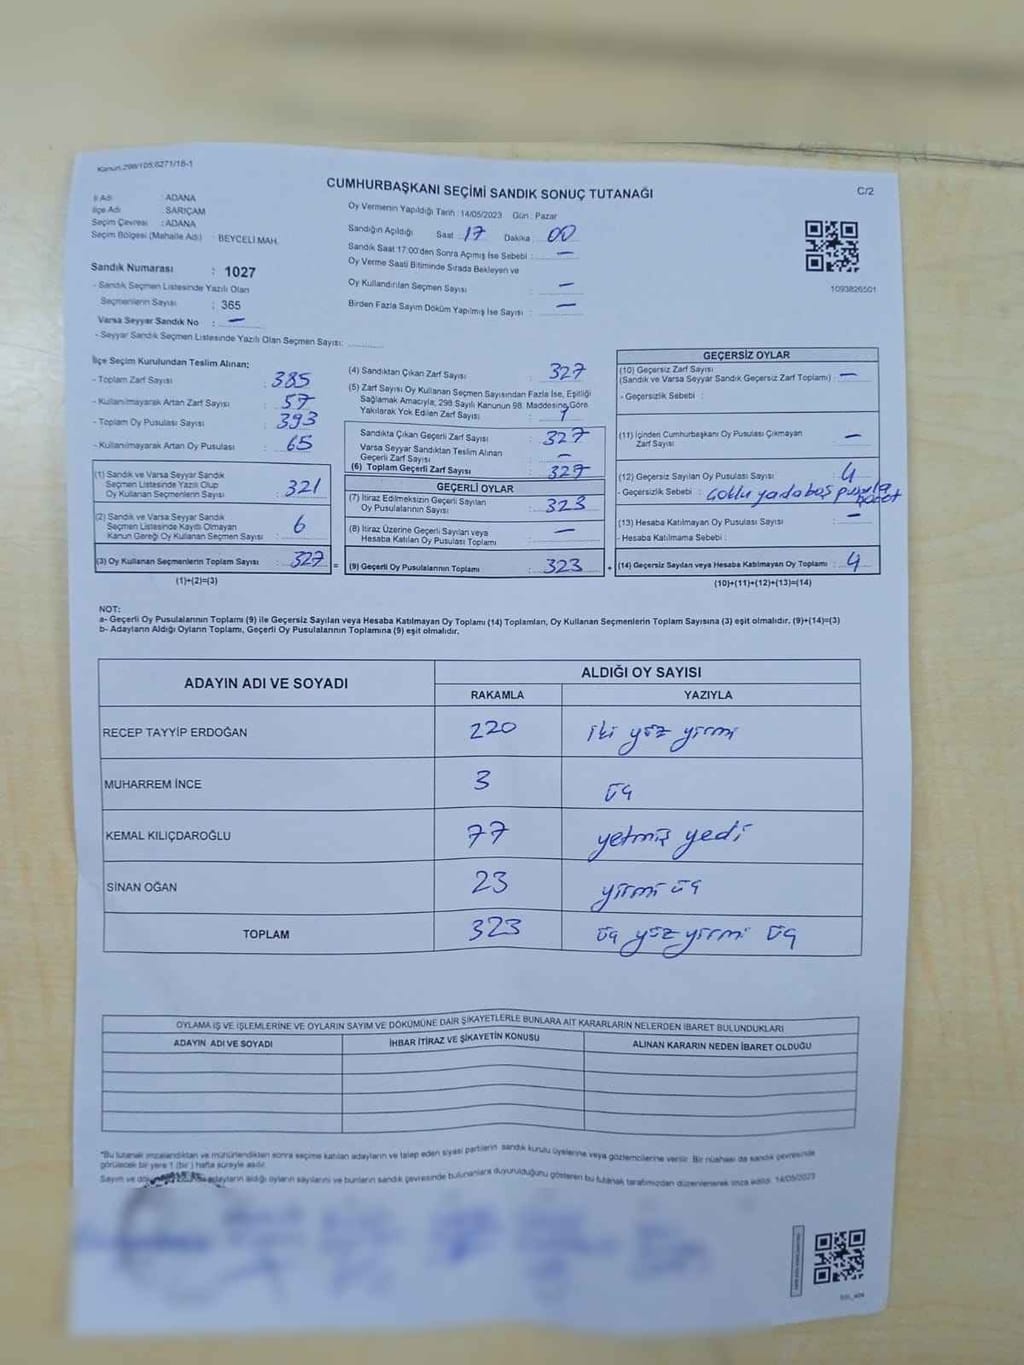 Kanun:298/105;6271/18-1
CUMHURBAŞKANI SEÇİMİ SANDIK SONUÇ TUTANAĞI
C/2
İl Adı : ADANA
İlçe Adı : SARIÇAM
Seçim Çevresi : ADANA
Seçim Bölgesi (Mahalle Adı) : BEYCELİ MAH.
Sandık Numarası : 1027
- Sandık Seçmen Listesinde Yazılı Olan
Seçmenlerin Sayısı : 365
Varsa Seyyar Sandık No : —
- Seyyar Sandık Seçmen Listesinde Yazılı Olan Seçmen Sayısı:
Oy Vermenin Yapıldığı Tarih : 14/05/2023 Gün : Pazar
Sandığın Açıldığı Saat 17 Dakika 00
Sandık Saat 17:00'den Sonra Açılmış İse Sebebi : —
Oy Verme Saati Bitiminde Sırada Bekleyen ve
Oy Kullandırılan Seçmen Sayısı : —
Birden Fazla Sayım Döküm Yapılmış İse Sayısı : —
1093826501
İlçe Seçim Kurulundan Teslim Alınan;
- Toplam Zarf Sayısı : 385
- Kullanılmayarak Artan Zarf Sayısı : 57
- Toplam Oy Pusulası Sayısı : 393
- Kullanılmayarak Artan Oy Pusulası : 65
(1) Sandık ve Varsa Seyyar Sandık
Seçmen Listesinde Yazılı Olup
Oy Kullanan Seçmenlerin Sayısı : 321
(2) Sandık ve Varsa Seyyar Sandık
Seçmen Listesinde Kayıtlı Olmayan
Kanun Gereği Oy Kullanan Seçmen Sayısı : 6
(3) Oy Kullanan Seçmenlerin Toplam Sayısı : 327 =
(1)+(2)=(3)
(4) Sandıktan Çıkan Zarf Sayısı : 327
(5) Zarf Sayısı Oy Kullanan Seçmen Sayısından Fazla İse, Eşitliği
Sağlamak Amacıyla; 298 Sayılı Kanunun 98. Maddesine Göre
Yakılarak Yok Edilen Zarf Sayısı :
Sandıkta Çıkan Geçerli Zarf Sayısı : 327
Varsa Seyyar Sandıktan Teslim Alınan
Geçerli Zarf Sayısı : —
(6) Toplam Geçerli Zarf Sayısı : 327
GEÇERLİ OYLAR
(7) İtiraz Edilmeksizin Geçerli Sayılan
Oy Pusulalarının Sayısı : 323
(8) İtiraz Üzerine Geçerli Sayılan veya
Hesaba Katılan Oy Pusulası Toplamı : —
(9) Geçerli Oy Pusulalarının Toplamı : 323 +
GEÇERSİZ OYLAR
(10) Geçersiz Zarf Sayısı
(Sandık ve Varsa Seyyar Sandık Geçersiz Zarf Toplamı) : —
- Geçersizlik Sebebi :
(11) İçinden Cumhurbaşkanı Oy Pusulası Çıkmayan
Zarf Sayısı : —
(12) Geçersiz Sayılan Oy Pusulası Sayısı : 4
- Geçersizlik Sebebi : yada boş pusula
(13) Hesaba Katılmayan Oy Pusulası Sayısı : —
- Hesaba Katılmama Sebebi :
(14) Geçersiz Sayılan veya Hesaba Katılmayan Oy Toplamı : 4
(10)+(11)+(12)+(13)=(14)
NOT:
a- Geçerli Oy Pusulalarının Toplamı (9) ile Geçersiz Sayılan veya Hesaba Katılmayan Oy Toplamı (14) Toplamları, Oy Kullanan Seçmenlerin Toplam Sayısına (3) eşit olmalıdır. (9)+(14)=(3)
b- Adayların Aldığı Oyların Toplamı, Geçerli Oy Pusulalarının Toplamına (9) eşit olmalıdır.
ADAYIN ADI VE SOYADI
ALDIĞI OY SAYISI
RAKAMLA YAZIYLA
RECEP TAYYİP ERDOĞAN 220 iki yüz yirmi
MUHARREM İNCE 3 üç
KEMAL KILIÇDAROĞLU 77 yetmiş yedi
SİNAN OĞAN 23 yirmi üç
TOPLAM 323 üç yüz yirmi üç
OYLAMA İŞ VE İŞLEMLERİNE VE OYLARIN SAYIM VE DÖKÜMÜNE DAİR ŞİKAYETLERLE BUNLARA AİT KARARLARIN NELERDEN İBARET BULUNDUKLARI
ADAYIN ADI VE SOYADI İHBAR İTİRAZ VE ŞİKAYETİN KONUSU ALINAN KARARIN NEDEN İBARET OLDUĞU
*Bu tutanak imzalandıktan ve mühürlendikten sonra seçime katılan adayların ve talep eden siyasi partilerin sandık kurulu üyelerine veya gözlemcilerine verilir. Bir nüshası da sandık çevresinde
görülecek bir yere 1 (bir) hafta süreyle asılır.
Sayım ve adayların aldığı oyların sayılarını ve bunların sandık çevresinde bulunanlara duyurulduğunu gösteren bu tutanak tarafımızdan düzenlenerek imza edildi. 14/05/2023